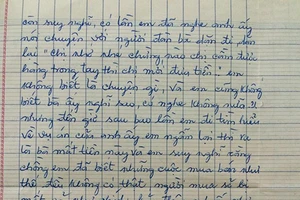 còn suy nghĩ, có lần em đã nghe anh ấy
nói chuyện với người đàn bà dẫn đi
lại " chị như chừng nào chị cầm được
hàng trong tay thì chị mới đưa tiền". em
không biết là chuyện gì, và em cũng không
biết bà ấy nghĩ sao, có nghe không nữa
nhưng đến giờ sau bao lần em đi tìm hiểu
về vụ án của anh ấy em ngẫm lại thì ra
là bà mất tiền này và em suy nghĩ rằng
chồng em đã biết những cuộc mua bán như
thế đều không có thật, người mua sẽ bị